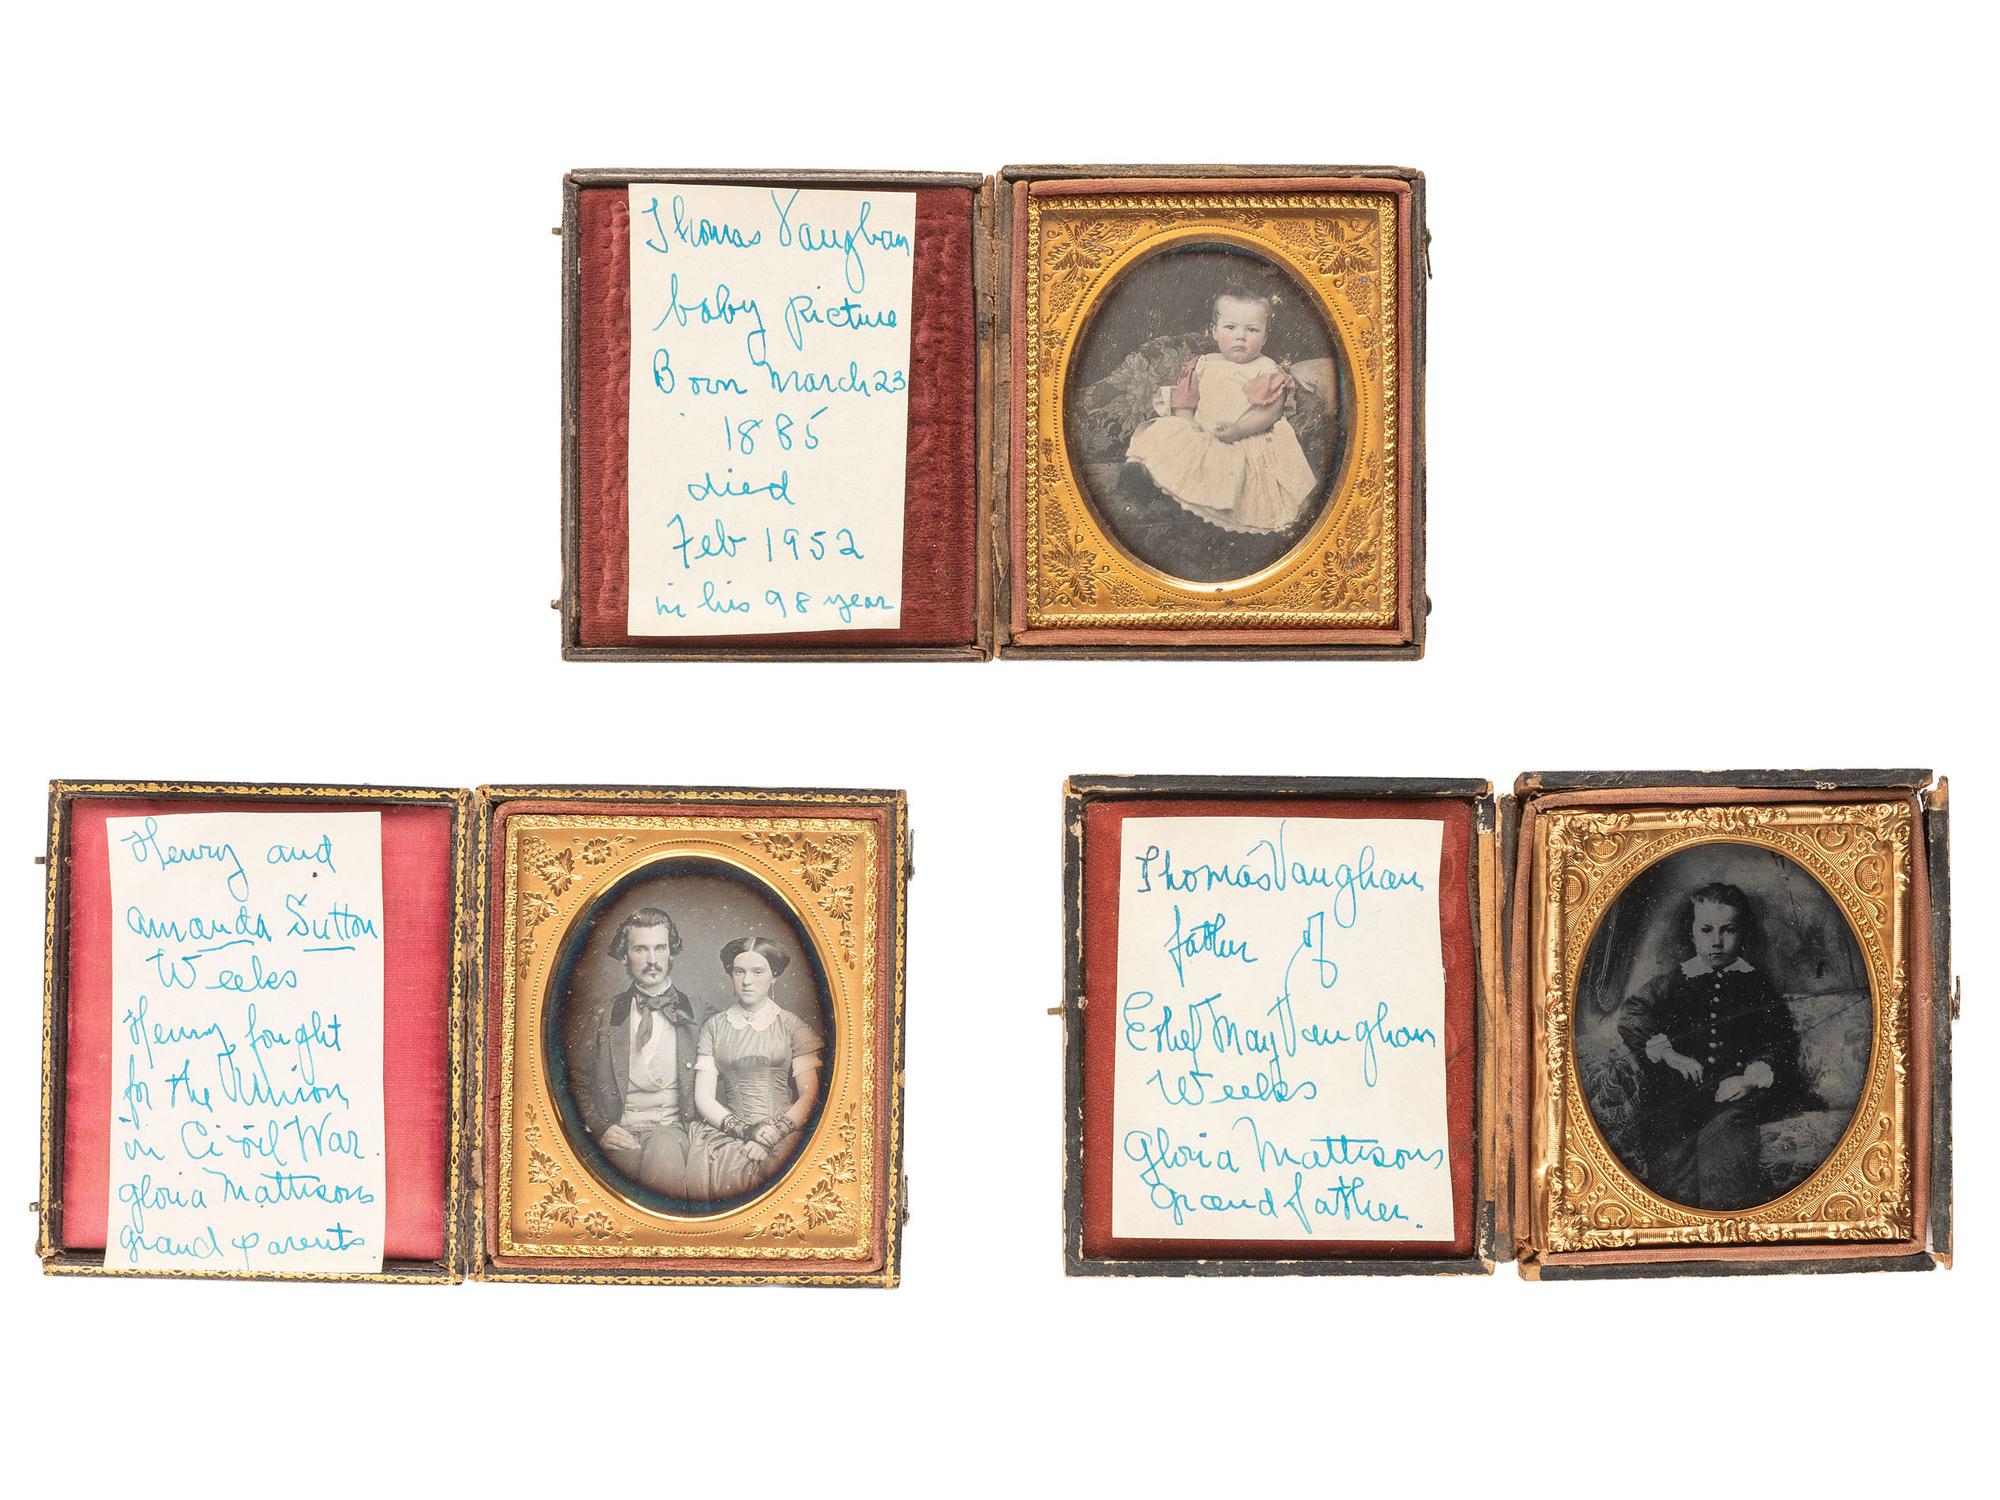 Thomas Vaughan
baby picture
Born March 23
1885
died
Feb 1952
in his 98 year
Henry and
Amanda Sutton
Weeks
Henry fought
for the Union
in Civil War.
Gloria Mattisons
grand parents.
Thomas Vaughan
father of
Ethel May Vaughan
Weeks
Gloria Mattisons
Grandfather.